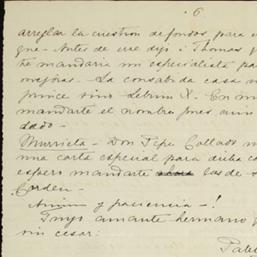 6
arreglar la cuestion de fondos para e
que - Antes de irse dijo á Thomas q
te mandaria un especialista pa
mejoras. - La consabida casa
prince sino Lebrun X. En mi
mandarte el nombre pues aun
dado -
Murrieta - Don Pepe Collado
una carta especial para dicha ca
espero mandarte las de
Corden -
Animo y paciencia - !
Tuyo amante hermano q
sin cesar:
Pabl